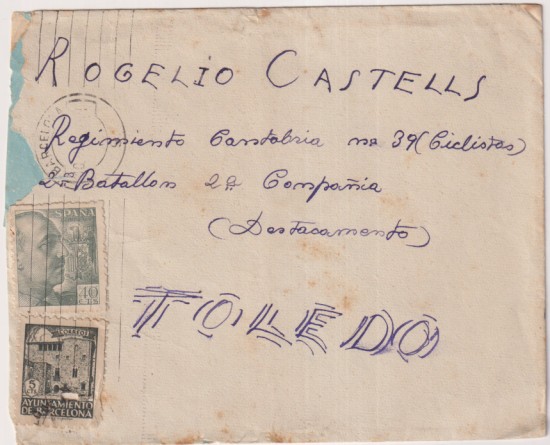 ROGELIO CASTELLS
Regimiento Cantabria nº 39 (Ciclistas)
2º Batallon 2ª Compañia
(Destacamento)
TOLEDO
BARCELONA
ESPAÑA
40
CTS
CORREOS
5
AYUNTAMIENTO
DE BARCELONA